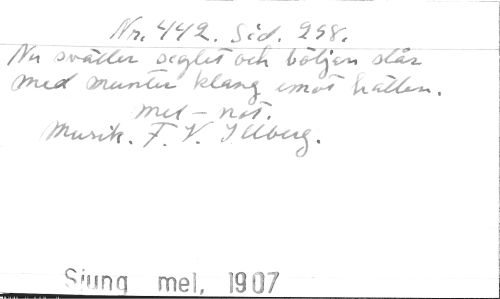 Nr. 442. Sid. 258.
Nu sväller seglet och böljan slår
med munter klang emot hällen.
mel - not.
Musik. F. V. Illberg.
Sjung mel, 1907